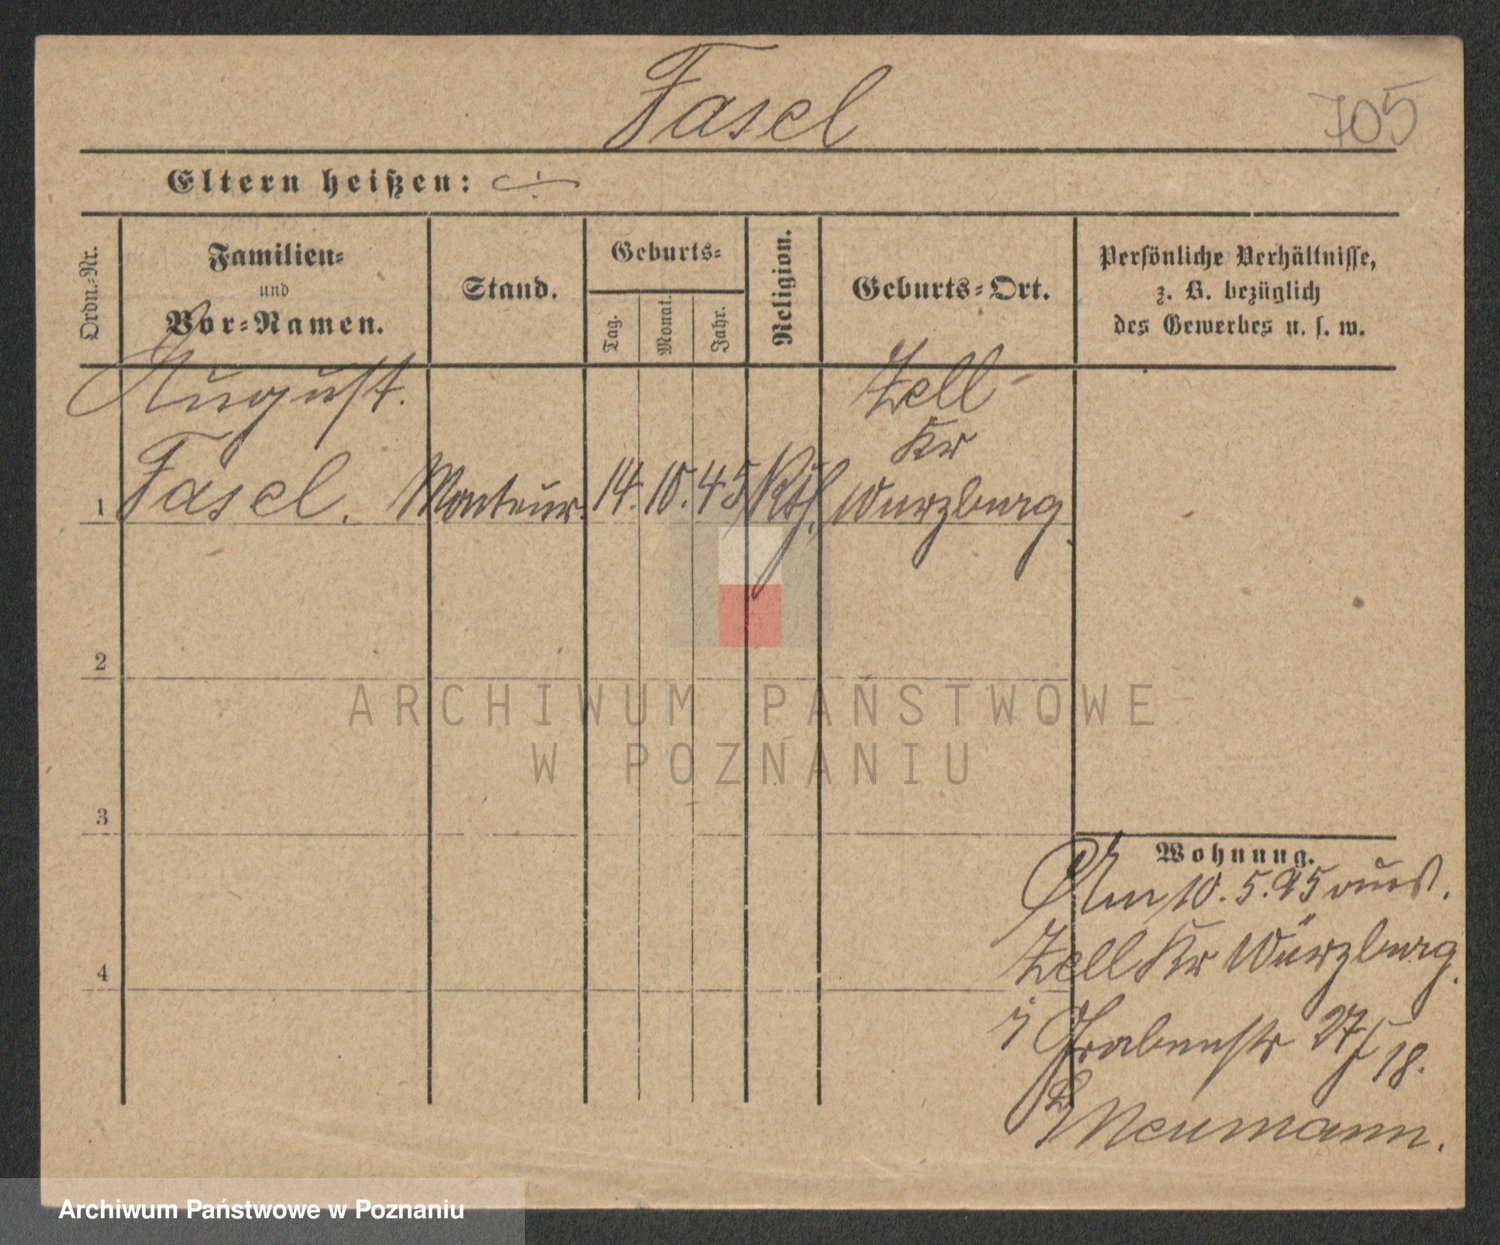 Fasel
705
Eltern heißen:
Ordn.-Nr.
Familien-
und
Vor-Namen.
Stand.
Geburts-
Tag.
Monat.
Jahr.
Religion.
Geburts-Ort.
Persönliche Verhältnisse,
z. B. bezüglich
des Gewerbes u. s. w.
August.
Zell
Kr
1 Fasel. Monteur. 14. 10. 45 Kth. Wurzburg.
2
ARCHIWUM PAŃSTWOWE
W POZNANIU
3
Wohnung.
Am 10. 5. 95 aus.
4
Zell Kr Würzburg.
Grabenstr 27/18.
b/ Neumann.
Archiwum Państwowe w Poznaniu